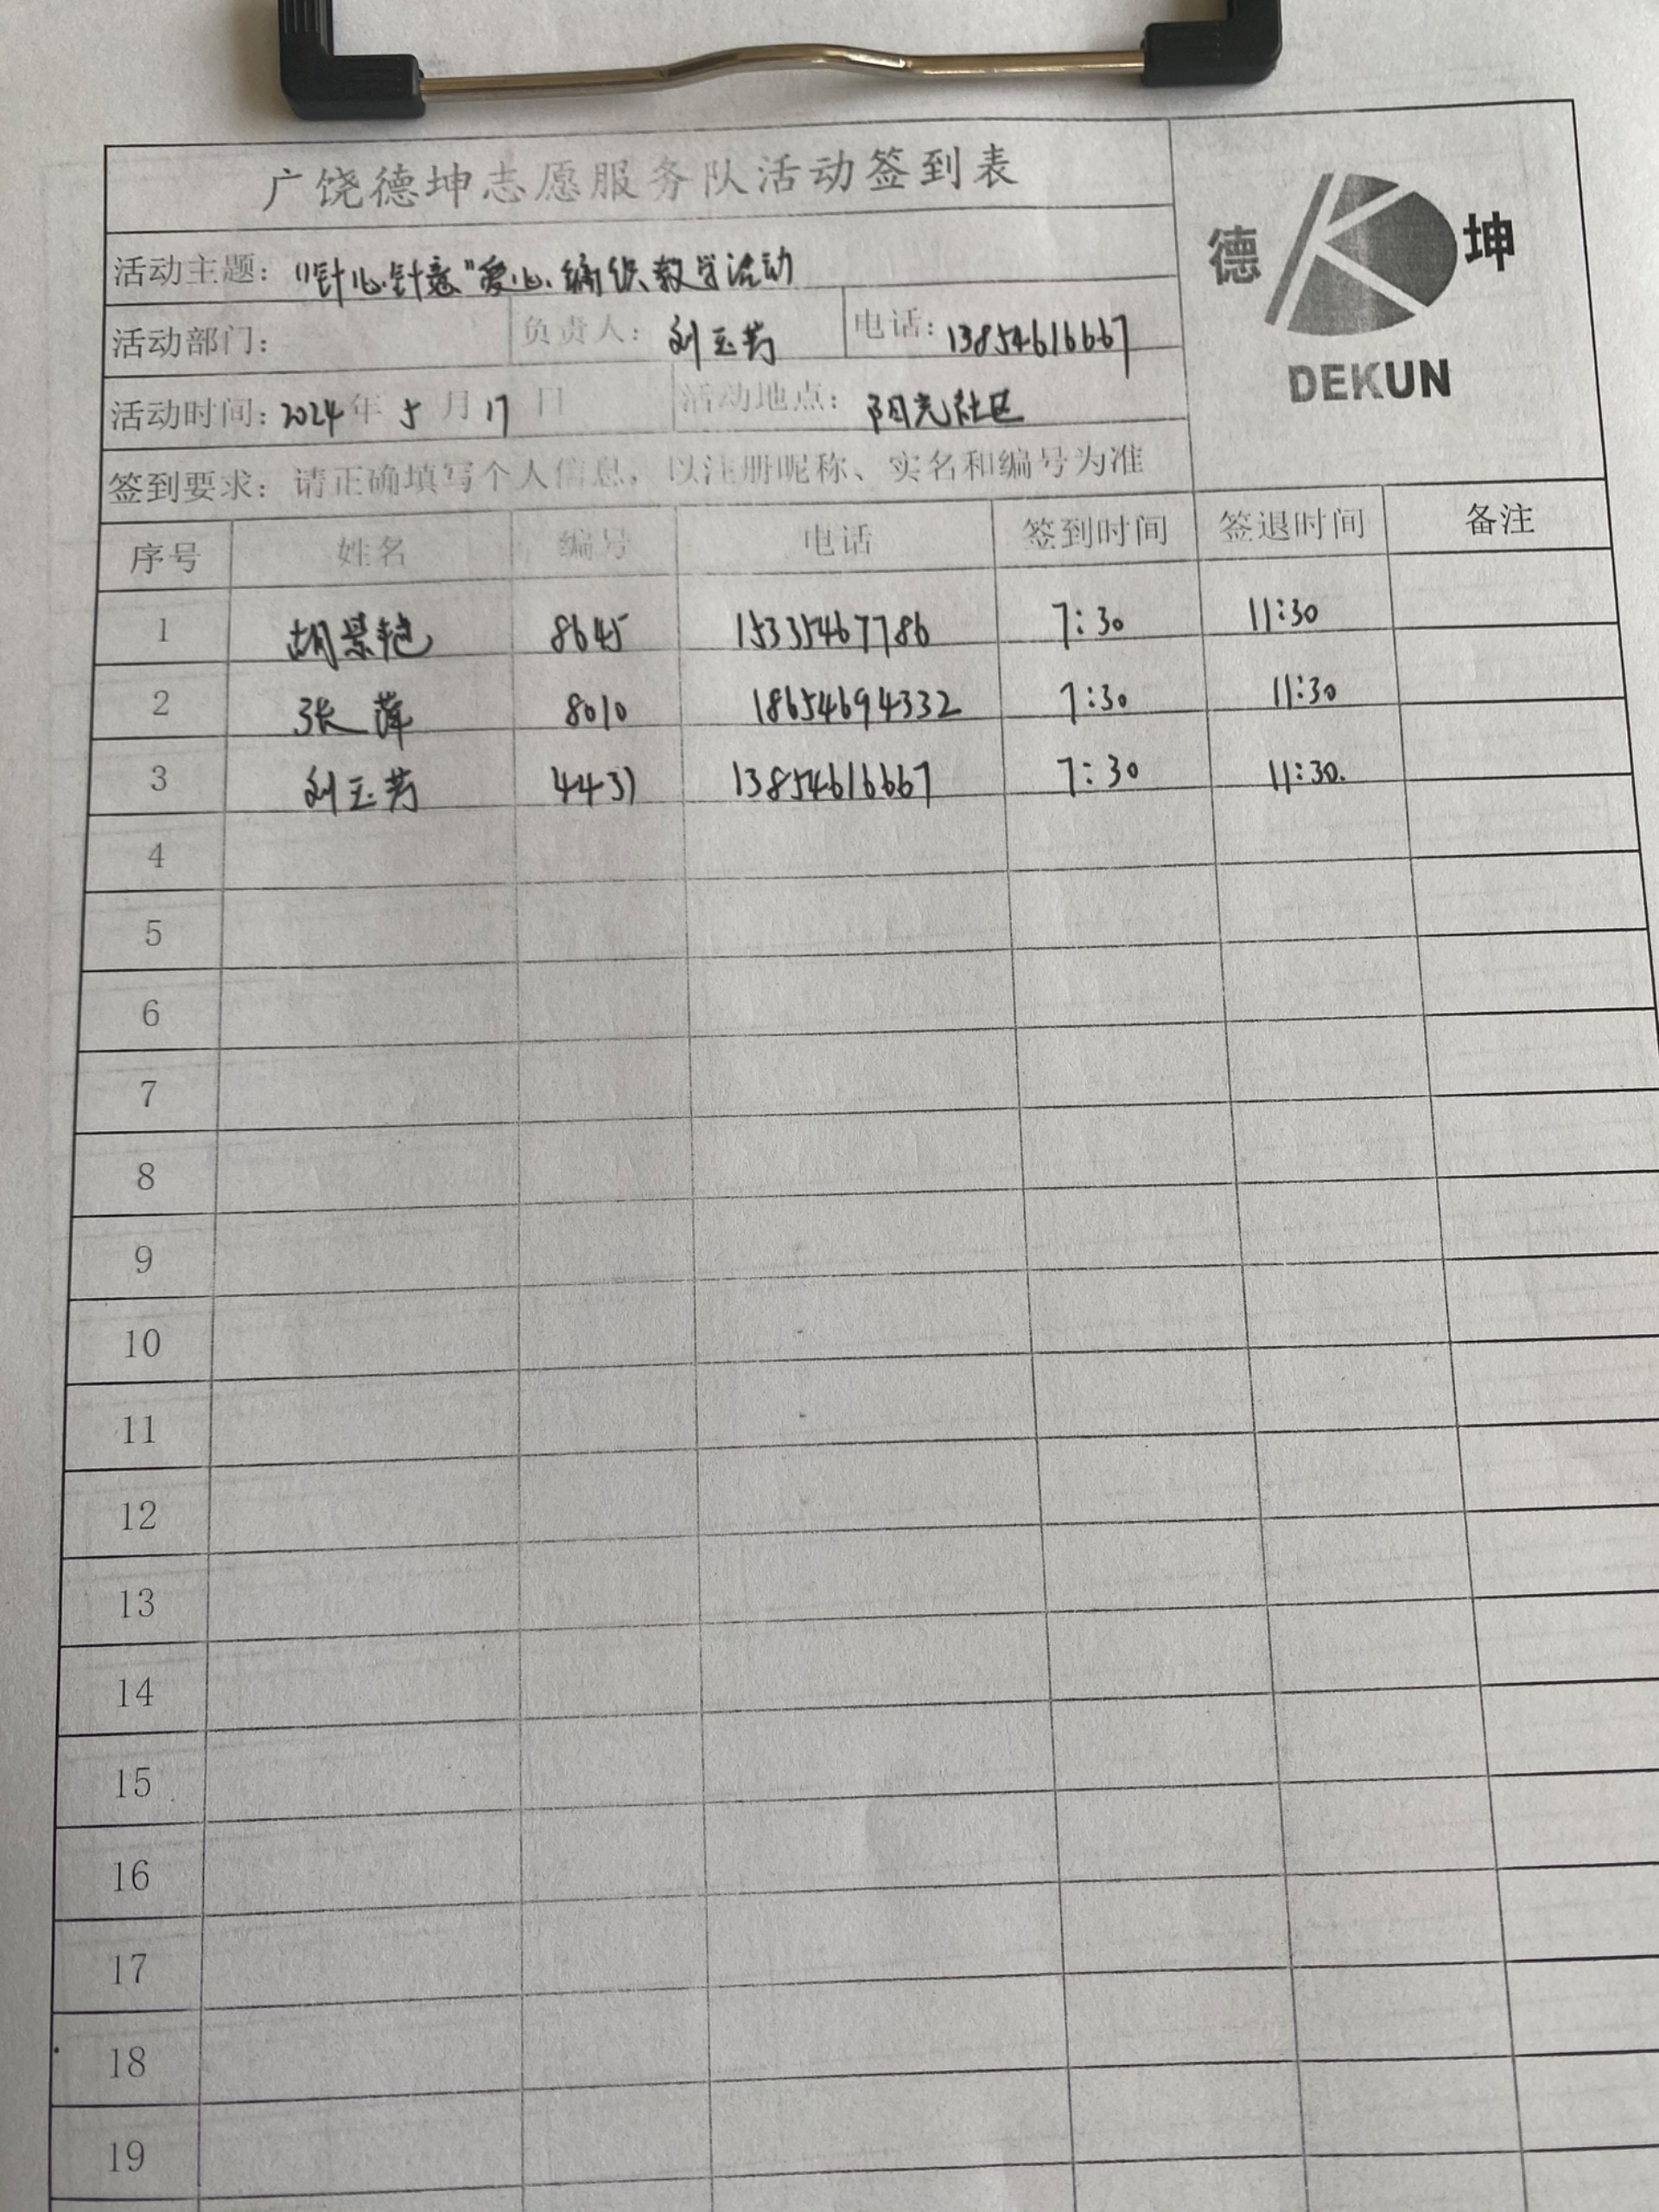 广饶德坤志愿服务队活动签到表
德 坤
DEKUN
活动主题: "针心针意"爱心编织教学活动
活动部门: 负责人: 刘玉芳 电话: 13854616667
活动时间: 2024年 5 月 17 日 活动地点: 阳光社区
签到要求: 请正确填写个人信息,以注册昵称、实名和编号为准
序号 姓名 编号 电话 签到时间 签退时间 备注
1 胡景艳 8645 15335467786 7:30 11:30
2 张萍 8010 18654694332 7:30 11:30
3 刘玉芳 4431 13854616667 7:30 11:30.
4
5
6
7
8
9
10
11
12
13
14
15
16
17
18
19